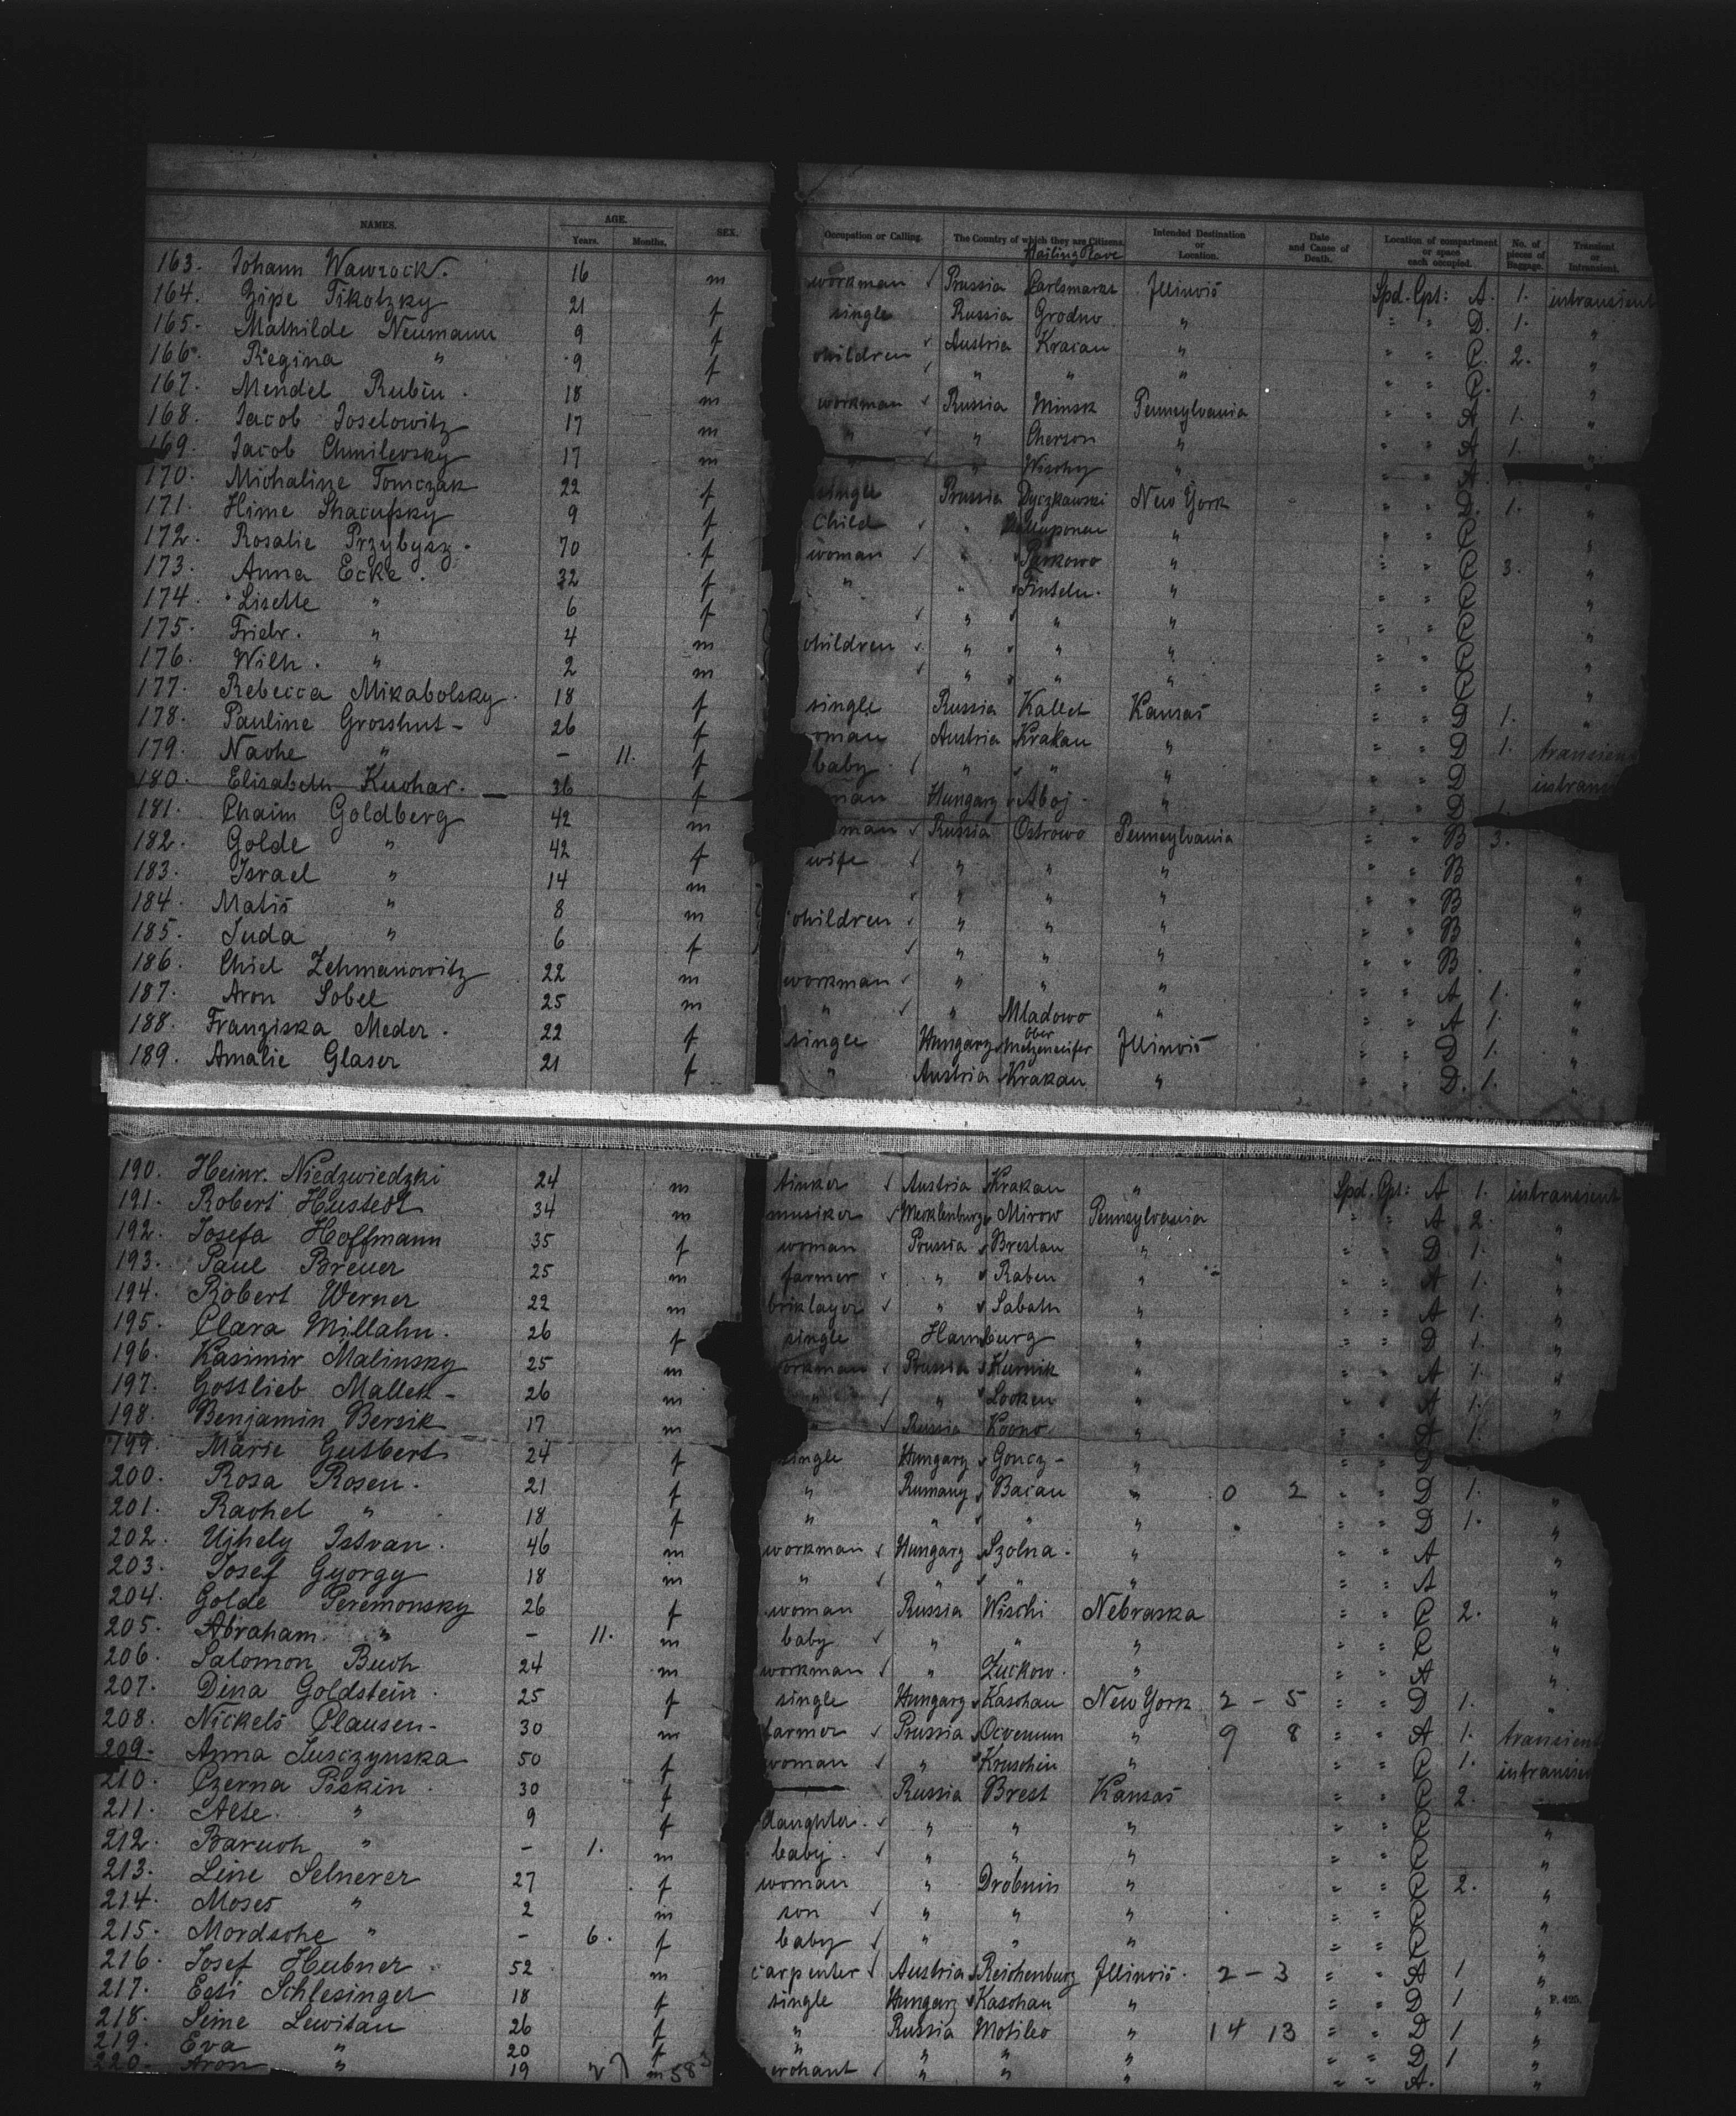 NAMES. AGE. Years. Months. SEX. Occupation or Calling. The Country of which they are Citizens. Mailing Place Intended Destination or Location. Date and Cause of Death. Location of compartment or space each occupied. No. of pieces of Baggage. Transient or Intransient.
163. Johann Wawrock. 16 m workman Prussia Carlsmarkt Illinois Spd. Cpt: A. 1. intransient
164. Zipe Tikotzky 21 f single Russia Grodno " " " D. 1. "
165. Mathilde Neumann 9 f children Austria Kracau " " " C. 2. "
166. Regina " 9 f " " " " " C. "
167. Mendel Rubin. 18 m workman Russia Minsk Pennsylvania " " A 1. "
168. Jacob Joselowitz 17 m " " Cherson " " " A 1. "
169. Jacob Chmilevsky 17 m " Wischy " " " A "
170. Michaline Tomczak 22 f single Prussia Dyczkawski New York " " D. 1. "
171. Hime Shacufsky 9 f Child " " " " C "
172. Rosalie Przybysz. 70 f woman " Parkowo " " " C 3. "
173. Anna Ecke. 32 f " " Finteln. " " " C "
174. Lisette " 6 f " " " " " C "
175. Friedr. " 4 m children " " " " " C "
176. Wilh. " 2 m " " " " " C "
177. Rebecca Mikabolsky. 18 f single Russia Kallet Kansas " " D 1. "
178. Pauline Grosshut - 26 f oman Austria Krakau " " " D 1. transient
179. Nache " - 11. f baby " " " " " D intrans
180. Elisabeth Kuchar. 36 f man Hungary Aboj. " " " D 1.
181. Chaim Goldberg 42 m man Russia Ostrowo Pennsylvania " " B 3.
182. Golde " 42 f wife " " " " " B "
183. Israel " 14 m " " " " " B "
184. Matis " 8 m children " " " " " B "
185. Juda " 6 f " " " " " B "
186. Chiel Zehmanowitz 22 m workman " " " " " A 1. "
187. Aron Sobel 25 m " " Mladowo " " " A 1. "
188. Franziska Meder. 22 f single Hungary Ober Metzenseifer Illinois " " D 1. "
189. Amalie Glaser 21 f " Austria Krakau " " " D. 1. "
190. Heinr. Niedzwiedzki 24 m tinker Austria Krakau " Spd. Cpt: A 1. intransient
191. Robert Hustedt 34 m musiker Mecklenburg Mirow Pennsylvania " " A 2. "
192. Josefa Hoffmann 35 f woman Prussia Breslau " " " D 1. "
193. Paul Breuer 25 m farmer " Raben " " " A 1. "
194. Robert Werner 22 m briklayer " Sabath " " " A 1. "
195. Clara Millahn. 26 f single Hamburg " " " D 1. "
196. Kasimir Malinsky 25 m workman Prussia Kurnik " " " A 1. "
197. Gottlieb Mallek - 26 m " " Locken " " " A 1. "
198. Benjamin Bersik 17 m Russia Koono " " " A 1.
199. Marie Gutbert 24 f single Hungary Goncz - " " " D
200. Rosa Rosen. 21 f " Rumany Bacau " 0 2 " " D 1. "
201. Rachel " 18 f " " " " " " D 1. "
202. Ujhely Istvan. 46 m workman Hungary Szolna. " " " A "
203. Josef Gyorgy 18 m " " " " " " A "
204. Golde Peremonsky 26 f woman Russia Wischi Nebraska " " C 2. "
205. Abraham " - 11. m baby " " " " " C "
206. Salomon Buch 24 m workman " Zuckow. " " " A "
207. Dina Goldstein. 25 f single Hungary Kaschau New York 2 - 5 " " D 1. "
208. Nickels Clausen - 30 m farmer Prussia Ocvenum " 9 8 " " A 1. transient
209. Anna Jusczynska 50 f woman " Kruschin " " " C 1. intransien
210. Czerna Piskin. 30 f — Russia Brest Kansas " " C 2.
211. Alte. " 9 f daughter. " " " " " C "
212. Baruch " - 1. m baby. " " " " " C "
213. Leine Selnerer 27 f woman " Drobnin " " " C 2. "
214. Moses " 2 m son " " " " " C "
215. Mordsche " - 6. f baby " " " " " C "
216. Josef Hubner 52 m carpenter Austria Reichenburg Illinois. 2 - 3 " " A 1 "
217. Esti Schlesinger 18 f single Hungary Kaschau " " " D 1 "
F. 425.
218. Seine Lewitau 26 f " Russia Motileo " 14 13 " " D 1 "
219. Eva " 20 f " " " " " " D 1 "
220. Aron " 19 27 m 583 erchant " " " " " A. "